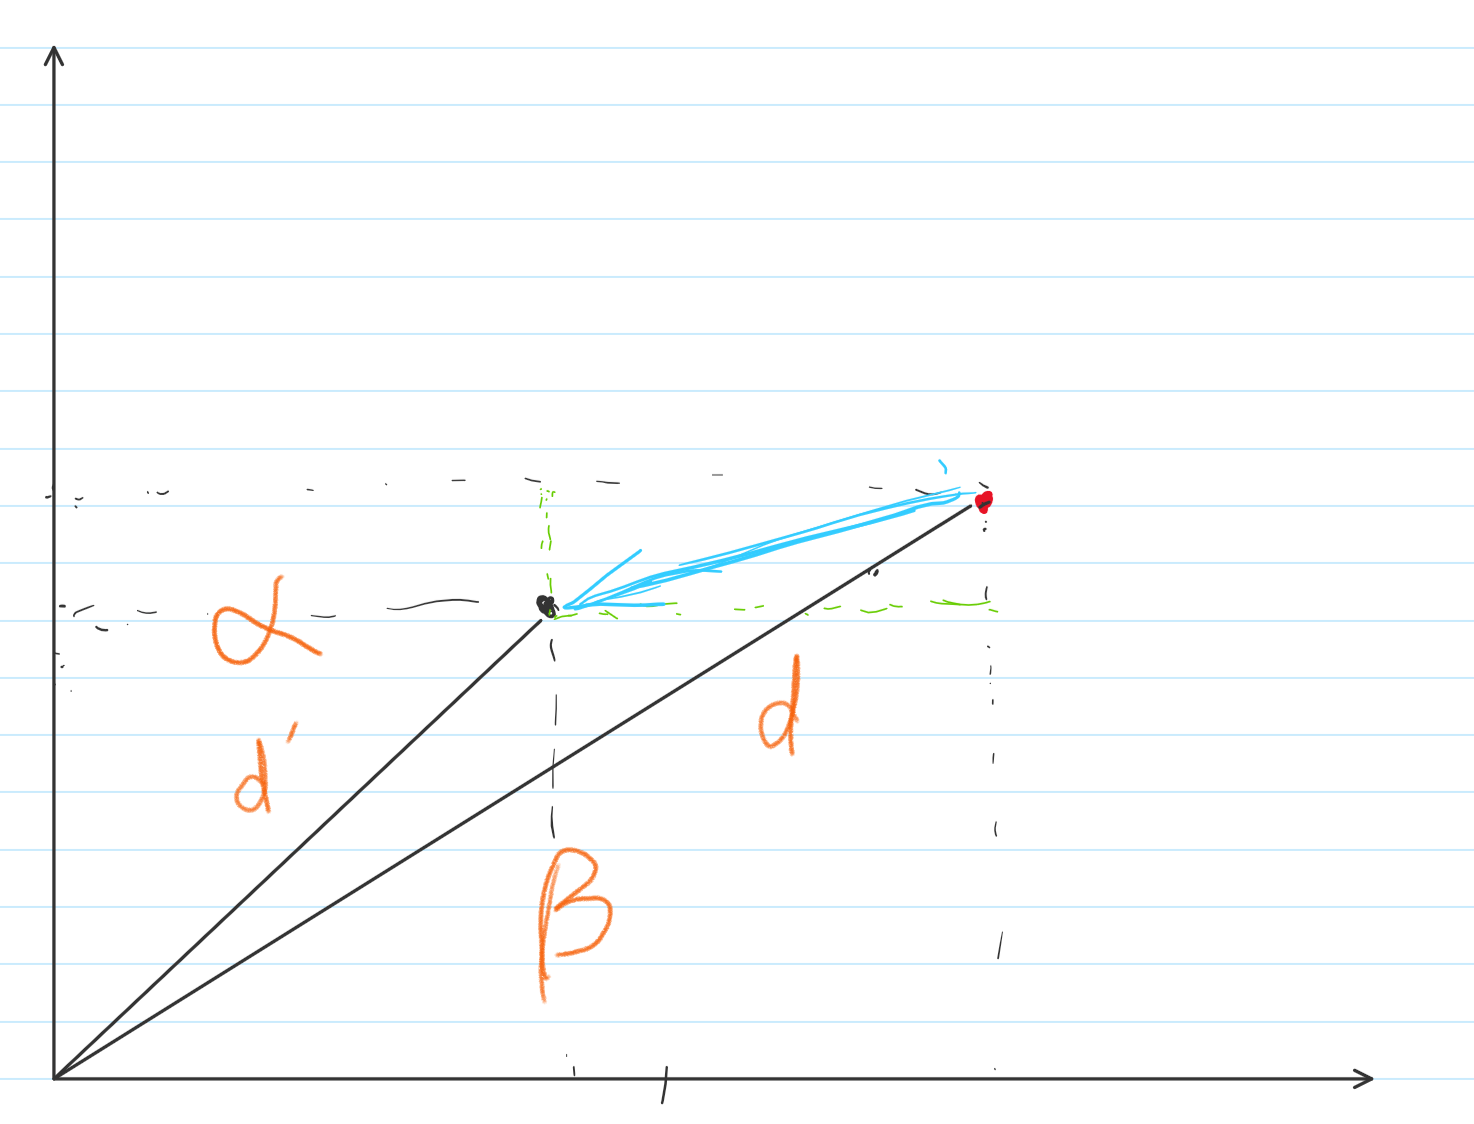 α
d
d′
β